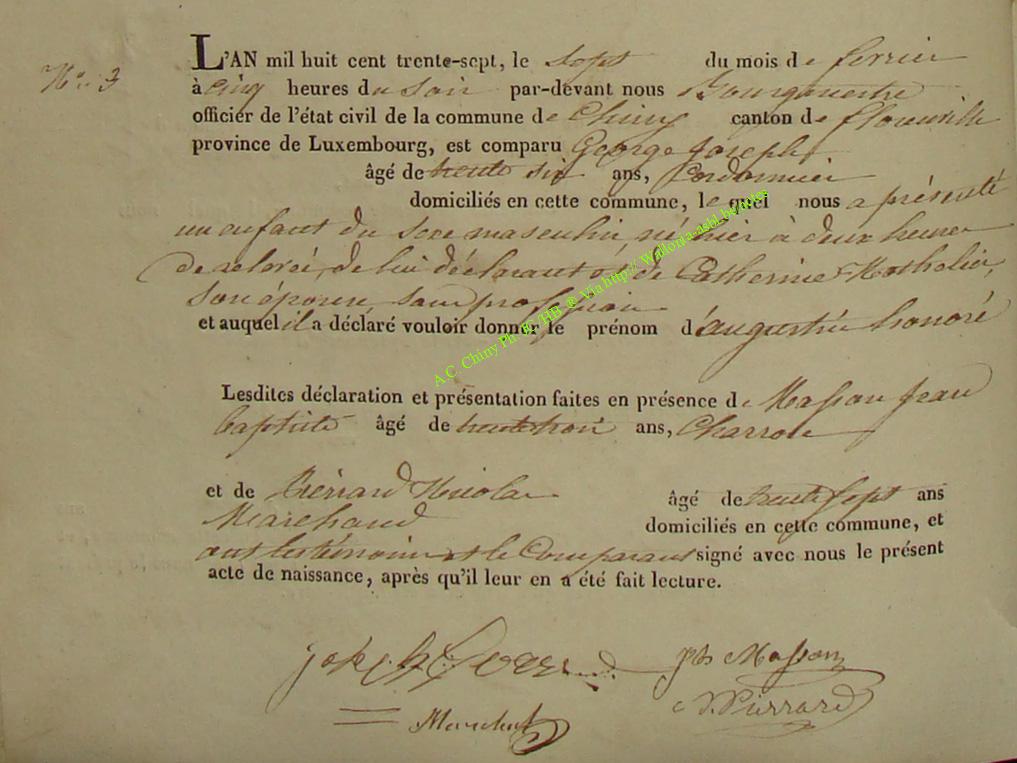 N° 3
L'AN mil huit cent trente-sept, le sept du mois de fevrier
à cinq heures du soir par-devant nous Bourgmestre
officier de l'état civil de la commune de Chiny canton de florenville
province de Luxembourg, est comparu George Joseph
âgé de trente six ans, Cordonnier
domiciliés en cette commune, le quel nous a présenté
un enfant du sexe masculin, né hier à deux heures
de relevée, de lui déclarant et de Catherine
son épouse sans profession
et auquel il a déclaré vouloir donner le prénom d'augustin honoré
A.C. Chiny Ph. & HB @ Via http:// Wallonia-asbl.be/actes
Lesdites déclaration et présentation faites en présence de Masson Jean
baptiste âgé de trente trois ans, Charron
et de Pierrard Nicolas âgé de trente sept ans
Marchand domiciliés en cette commune, et
ont les témoins et le Comparant signé avec nous le présent
acte de naissance, après qu'il leur en a été fait lecture.
Joseph Jb Masson
N. Pierrard